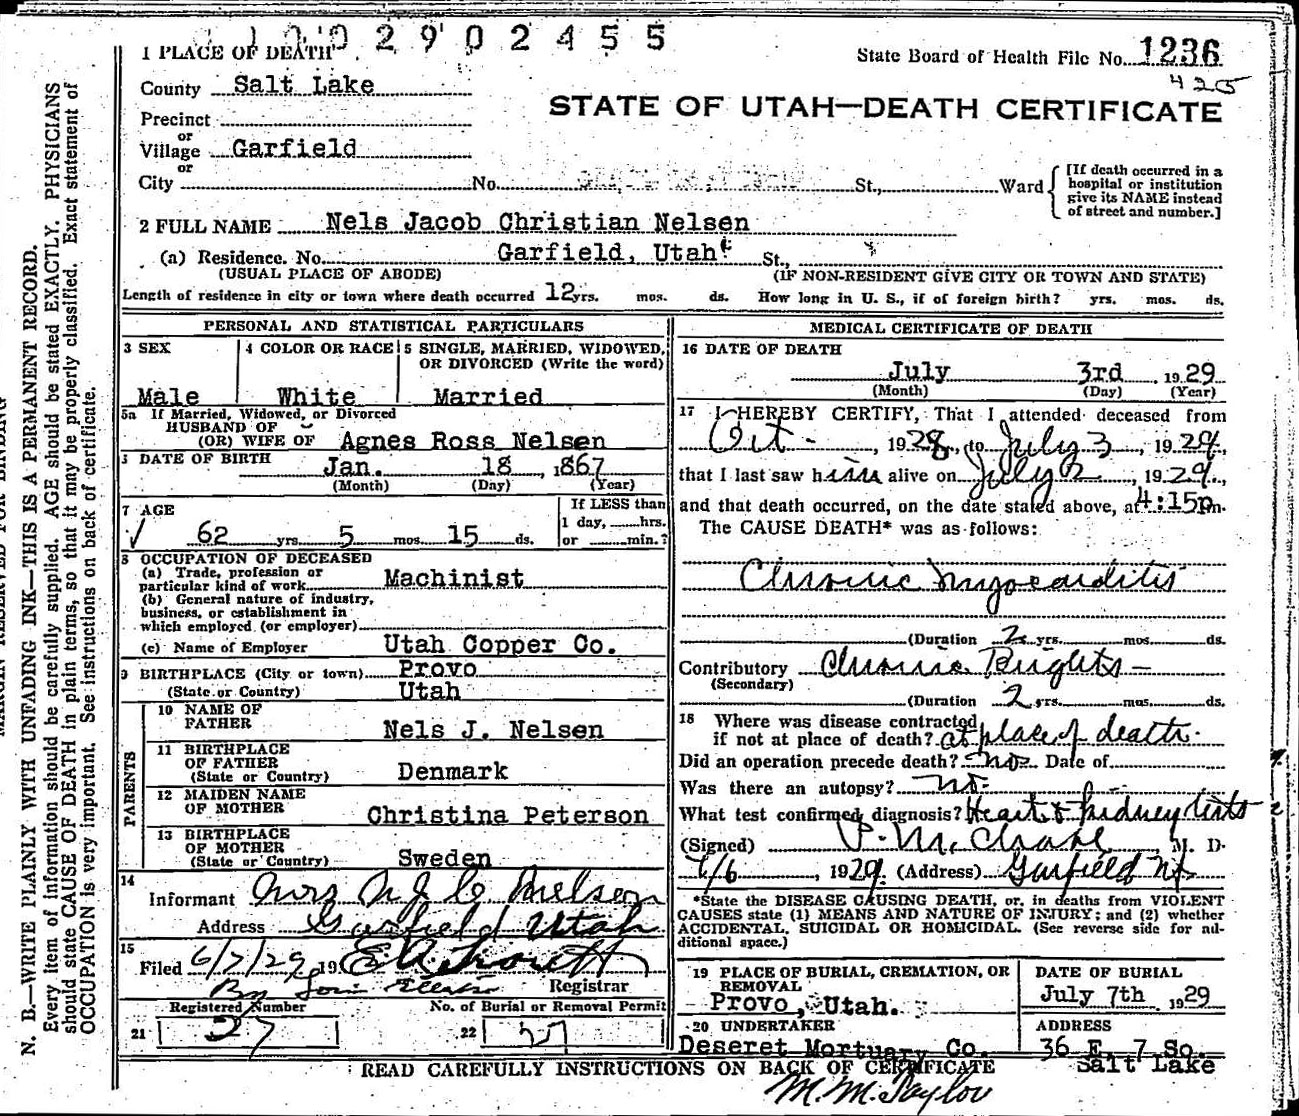 1 1 0 0 2 9 0 2 4 5 5
1 PLACE OF DEATH
State Board of Health File No. 1236
425
County Salt Lake
STATE OF UTAH—DEATH CERTIFICATE
Precinct
or
Village Garfield
or
City No. St., Ward
[If death occurred in a
hospital or institution
give its NAME instead
of street and number.]
2 FULL NAME Nels Jacob Christian Nelsen
(a) Residence. No. Garfield, Utah St.,
(USUAL PLACE OF ABODE) (IF NON-RESIDENT GIVE CITY OR TOWN AND STATE)
Length of residence in city or town where death occurred 12 yrs. mos. ds. How long in U. S., if of foreign birth? yrs. mos. ds.
PERSONAL AND STATISTICAL PARTICULARS
3 SEX
Male
4 COLOR OR RACE
White
5 SINGLE, MARRIED, WIDOWED,
OR DIVORCED (Write the word)
Married
5a If Married, Widowed, or Divorced
HUSBAND OF
(OR) WIFE OF Agnes Ross Nelsen
DATE OF BIRTH
Jan. 18 , 1867
(Month) (Day) (Year)
7 AGE
62 yrs. 5 mos. 15 ds.
If LESS than
1 day, hrs.
or min.?
8 OCCUPATION OF DECEASED
(a) Trade, profession or
particular kind of work Machinist
(b) General nature of industry,
business, or establishment in
which employed (or employer)
(c) Name of Employer Utah Copper Co.
9 BIRTHPLACE (City or town) Provo
(State or Country) Utah
PARENTS
10 NAME OF
FATHER Nels J. Nelsen
11 BIRTHPLACE
OF FATHER
(State or Country) Denmark
12 MAIDEN NAME
OF MOTHER Christina Peterson
13 BIRTHPLACE
OF MOTHER
(State or Country) Sweden
14
Informant Mrs N J C Nelsen
Address Garfield Utah
15
Filed 6/7/29 19
By
Registrar
Registered Number No. of Burial or Removal Permit
21 27 22
MEDICAL CERTIFICATE OF DEATH
16 DATE OF DEATH
July 3rd , 1929
(Month) (Day) (Year)
17 I HEREBY CERTIFY, That I attended deceased from
Oct - , 1928, to July 3 , 1929,
that I last saw him alive on July 2 , 1929,
and that death occurred, on the date stated above, at 4:15p m.
The CAUSE DEATH* was as follows:
Chronic Myocarditis
(Duration 2 yrs. mos. ds.
Contributory Chronic Brights -
(Secondary)
(Duration 2 yrs. mos. ds.
18 Where was disease contracted
if not at place of death? at place of death.
Did an operation precede death? no Date of
Was there an autopsy? no.
What test confirmed diagnosis? Heart & kidney tests
(Signed) , M. D.
7/6 , 1929. (Address) Garfield Ut
*State the DISEASE CAUSING DEATH, or, in deaths from VIOLENT
CAUSES state (1) MEANS AND NATURE OF INJURY; and (2) whether
ACCIDENTAL, SUICIDAL OR HOMICIDAL. (See reverse side for ad-
ditional space.)
19 PLACE OF BURIAL, CREMATION, OR
REMOVAL
Provo, Utah.
DATE OF BURIAL
July 7th , 1929
20 UNDERTAKER
Deseret Mortuary Co.
ADDRESS
36 E. 7 So.
Salt Lake
READ CAREFULLY INSTRUCTIONS ON BACK OF CERTIFICATE
M. M. Taylor
MARGIN RESERVED FOR BINDING
N. B.—WRITE PLAINLY WITH UNFADING INK—THIS IS A PERMANENT RECORD.
Every item of information should be carefully supplied. AGE should be stated EXACTLY. PHYSICIANS
should state CAUSE OF DEATH in plain terms, so that it may be properly classified. Exact statement of
OCCUPATION is very important. See instructions on back of certificate.